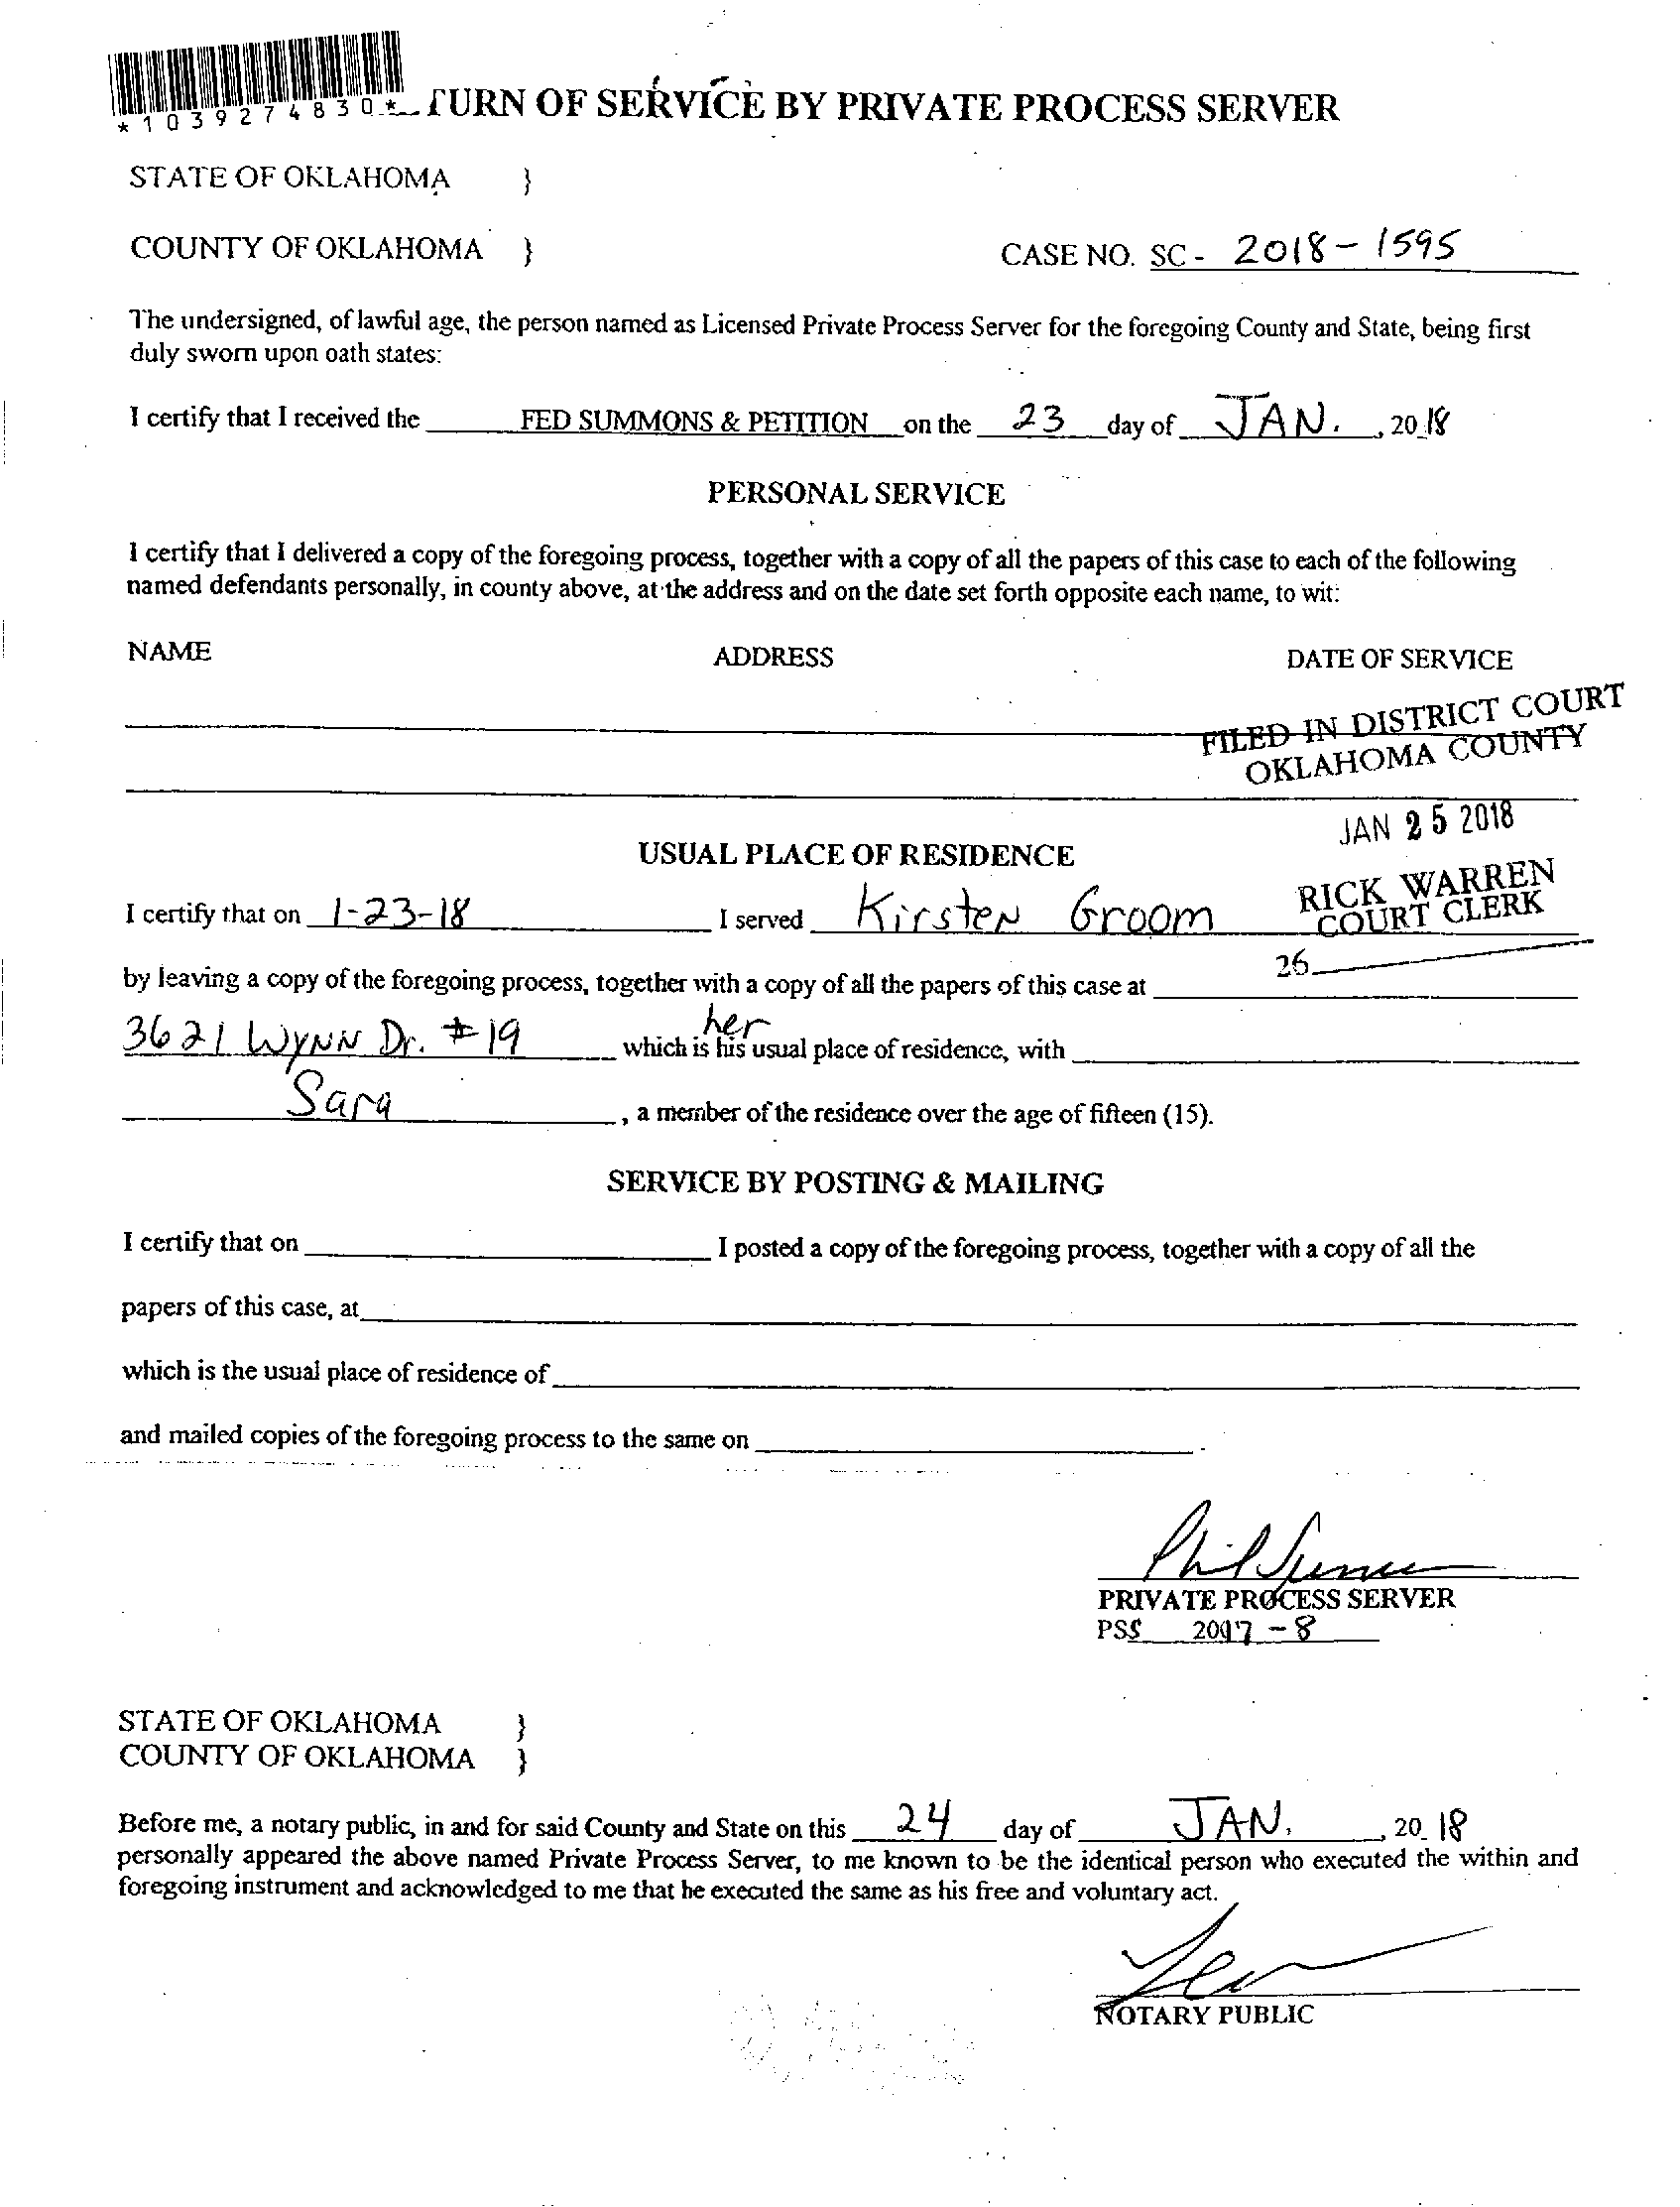 *1039274830*
TURN OF SERVICE BY PRIVATE PROCESS SERVER
STATE OF OKLAHOMA }
COUNTY OF OKLAHOMA } CASE NO. SC - 2018-1595
The undersigned, of lawful age, the person named as Licensed Private Process Server for the foregoing County and State, being first
duly sworn upon oath states:
I certify that I received the FED SUMMONS & PETITION on the 23 day of JAN. , 20 18
PERSONAL SERVICE
I certify that I delivered a copy of the foregoing process, together with a copy of all the papers of this case to each of the following
named defendants personally, in county above, at the address and on the date set forth opposite each name, to wit:
NAME ADDRESS DATE OF SERVICE
FILED IN DISTRICT COURT
OKLAHOMA COUNTY
JAN 25 2018
USUAL PLACE OF RESIDENCE
RICK WARREN
COURT CLERK
I certify that on 1-23-18 I served Kirsten Groom
26
by leaving a copy of the foregoing process, together with a copy of all the papers of this case at
her
3621 WYNN Dr. #19 which is his usual place of residence, with
Sara , a member of the residence over the age of fifteen (15).
SERVICE BY POSTING & MAILING
I certify that on I posted a copy of the foregoing process, together with a copy of all the
papers of this case, at
which is the usual place of residence of
and mailed copies of the foregoing process to the same on .
Phil
PRIVATE PROCESS SERVER
PSS 2017-8
STATE OF OKLAHOMA }
COUNTY OF OKLAHOMA }
Before me, a notary public, in and for said County and State on this 24 day of JAN. , 20 18
personally appeared the above named Private Process Server, to me known to be the identical person who executed the within and
foregoing instrument and acknowledged to me that he executed the same as his free and voluntary act.
NOTARY PUBLIC